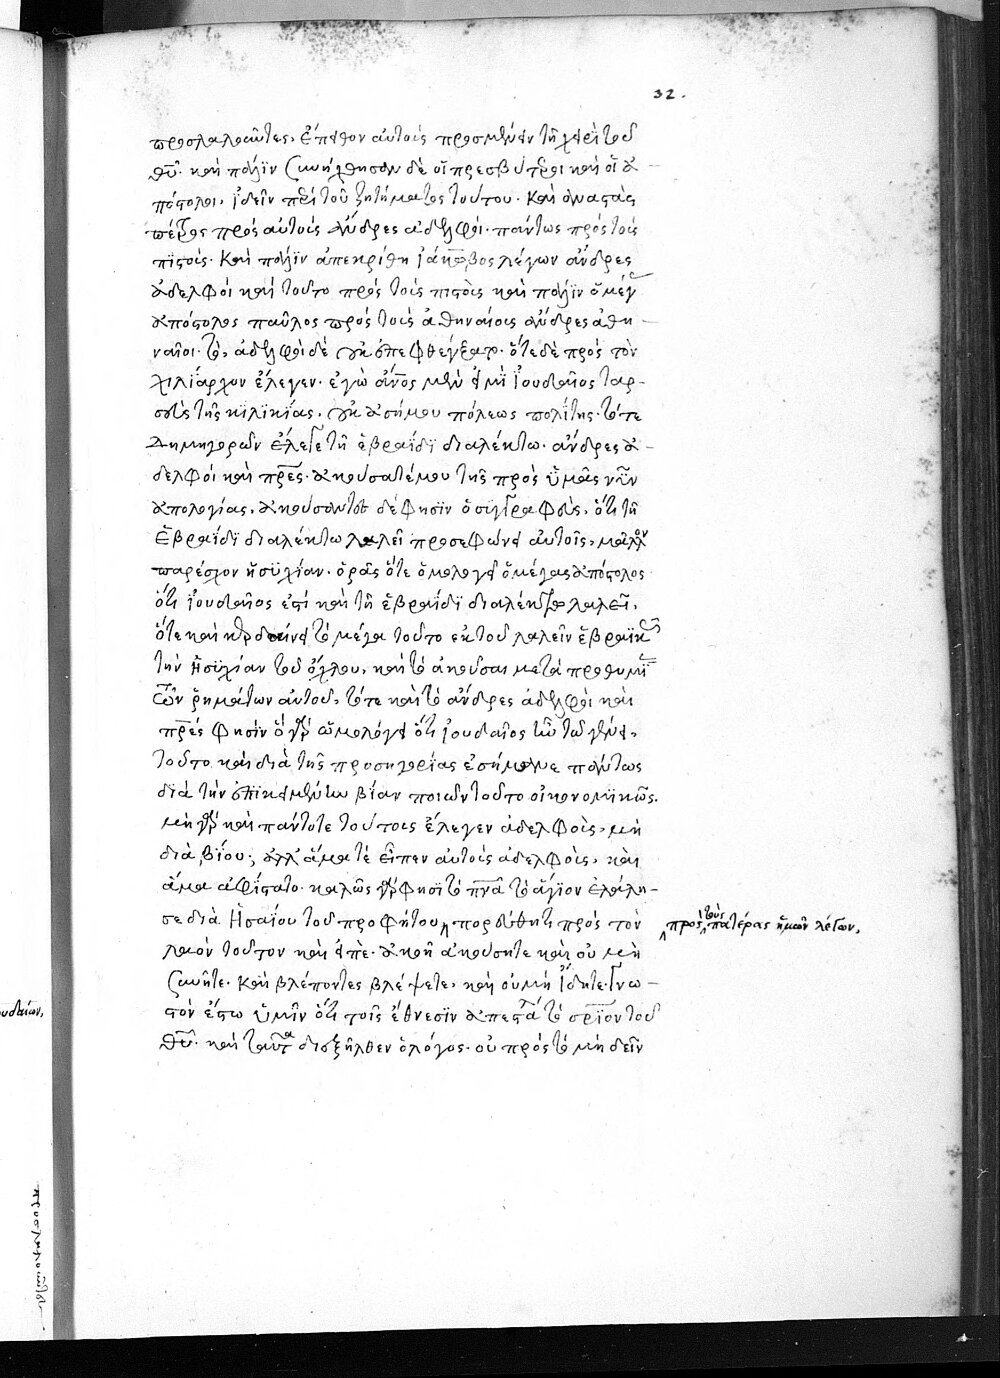 32.
προσλαλοῦντες, ἔπειθον αὐτοὺς προσμένειν τῇ χάριτι τοῦ
θυ̅. καὶ πάλιν συνήχθησαν δὲ οἱ πρεσβύτεροι καὶ οἱ ἀ-
πόστολοι, ἰδεῖν περὶ τοῦ ζητήματος τούτου. Καὶ ἀναστὰς
πέτρος πρὸς αὐτοὺς ἄνδρες ἀδελφοί. πάντως πρὸς τοὺς
πιστούς. Καὶ πάλιν ἀπεκρίθη ἰάκωβος λέγων ἄνδρες
ἀδελφοί καὶ τοῦτο πρὸς τοὺς πιστοὺς καὶ πάλιν ὁ μέγ
ἀπόστολος παῦλος πρὸς τοὺς ἀθηναίους ἄνδρες ἀθη-
ναῖοι. τὸ, ἀδελφοὶ δὲ οὐκ ἐπεφθέγξατο. ὅτε δὲ πρὸς τὸν
χιλίαρχον ἔλεγεν. ἐγὼ ἄνος μέν εἰμὶ ἰουδαῖος ταρ-
σεὺς τῆς κιλικίας, οὐκ ἀσήμου πόλεως πολίτης. τότε
δημηγορῶν ἔλεγε τῇ ἑβραΐδι διαλέκτω. ἄνδρες ἀ-
δελφοί καὶ πρες. ἀκούσατέ μου τῆς πρὸς ὑμᾶς νῦν
ἀπολογίας, ἀκούσαντες δέ φησιν ὁ συγγραφεὺς, ὅτι τῇ
ἑβραΐδι διαλέκτω λαλεῖ προσεφώνει αὐτοῖς, μᾶλλον
παρέσχον ἡσυχίαν. ὁρᾶς ὅτε ὁμολογεῖ ὁ μέγας ἀπόστολος
ὅτι ἰουδαῖός ἐστι καὶ τῇ ἑβραΐδι διαλέκτω λαλεῖ,
τὴν ἡσυχίαν τοῦ ὄχλου, καὶ τὸ ἀκοῦσαι μετὰ προθυμί
τῶν ῥημάτων αὐτοῦ, τότε καὶ τὸ ἄνδρες ἀδελφοὶ καὶ
πρες φησίν ὃ γὰρ ὡμολόγει ὅτι ἰουδαῖος ἦν τῶ γένει,
τοῦτο καὶ διὰ τῆς προσηγορίας ἐσήμανε πάντως
διὰ τὴν ἐπικειμένην βίαν ποιῶν τοῦτο οἰκονομικῶς.
μὴ γὰρ καὶ πάντοτε τούτοις ἔλεγεν ἀδελφοὺς, μὴ
διὰ βίου; ἀλλ' ἅμα τὲ εἶπεν αὐτοὺς ἀδελφοὺς, καὶ
ἅμα ἀφίστατο. καλῶς γὰρ φησὶ τὸ πνα τὸ ἅγιον ἐλάλη-
σε διὰ Ἡσαΐου τοῦ προφήτου, πορεύθητι πρὸς τὸν
πρὸς τοὺς πατέρας ἡμῶν λέγων,
λαὸν τοῦτον καὶ εἰπὲ. ἀκοῇ ἀκούσητε καὶ οὐ μὴ
συνῆτε. καὶ βλέποντες βλέψετε, καὶ οὐ μὴ ἴδητε. γνω-
στὸν ἔστω ὑμῖν ὅτι τοῖς ἔθνεσιν ἀπεστάλη τὸ σριον τοῦ
θυ̅. καὶ ταῦτα διεξῆλθεν ὁ λόγος. οὐ πρὸς τὸ μὴ δεῖν